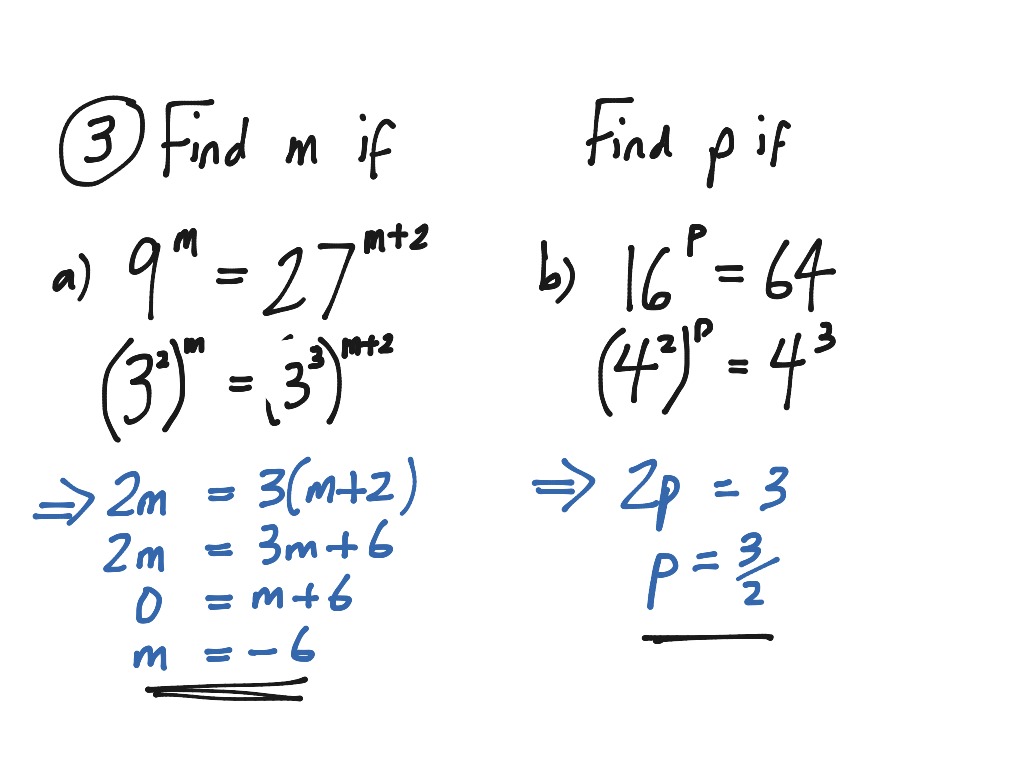 ③ Find m if
a) 9^m = 27^(m+2)
(3²)^m = (3³)^(m+2)
⇒ 2m = 3(m+2)
2m = 3m+6
0 = m+6
m = -6
Find p if
b) 16^p = 64
(4²)^p = 4³
⇒ 2p = 3
p = 3/2